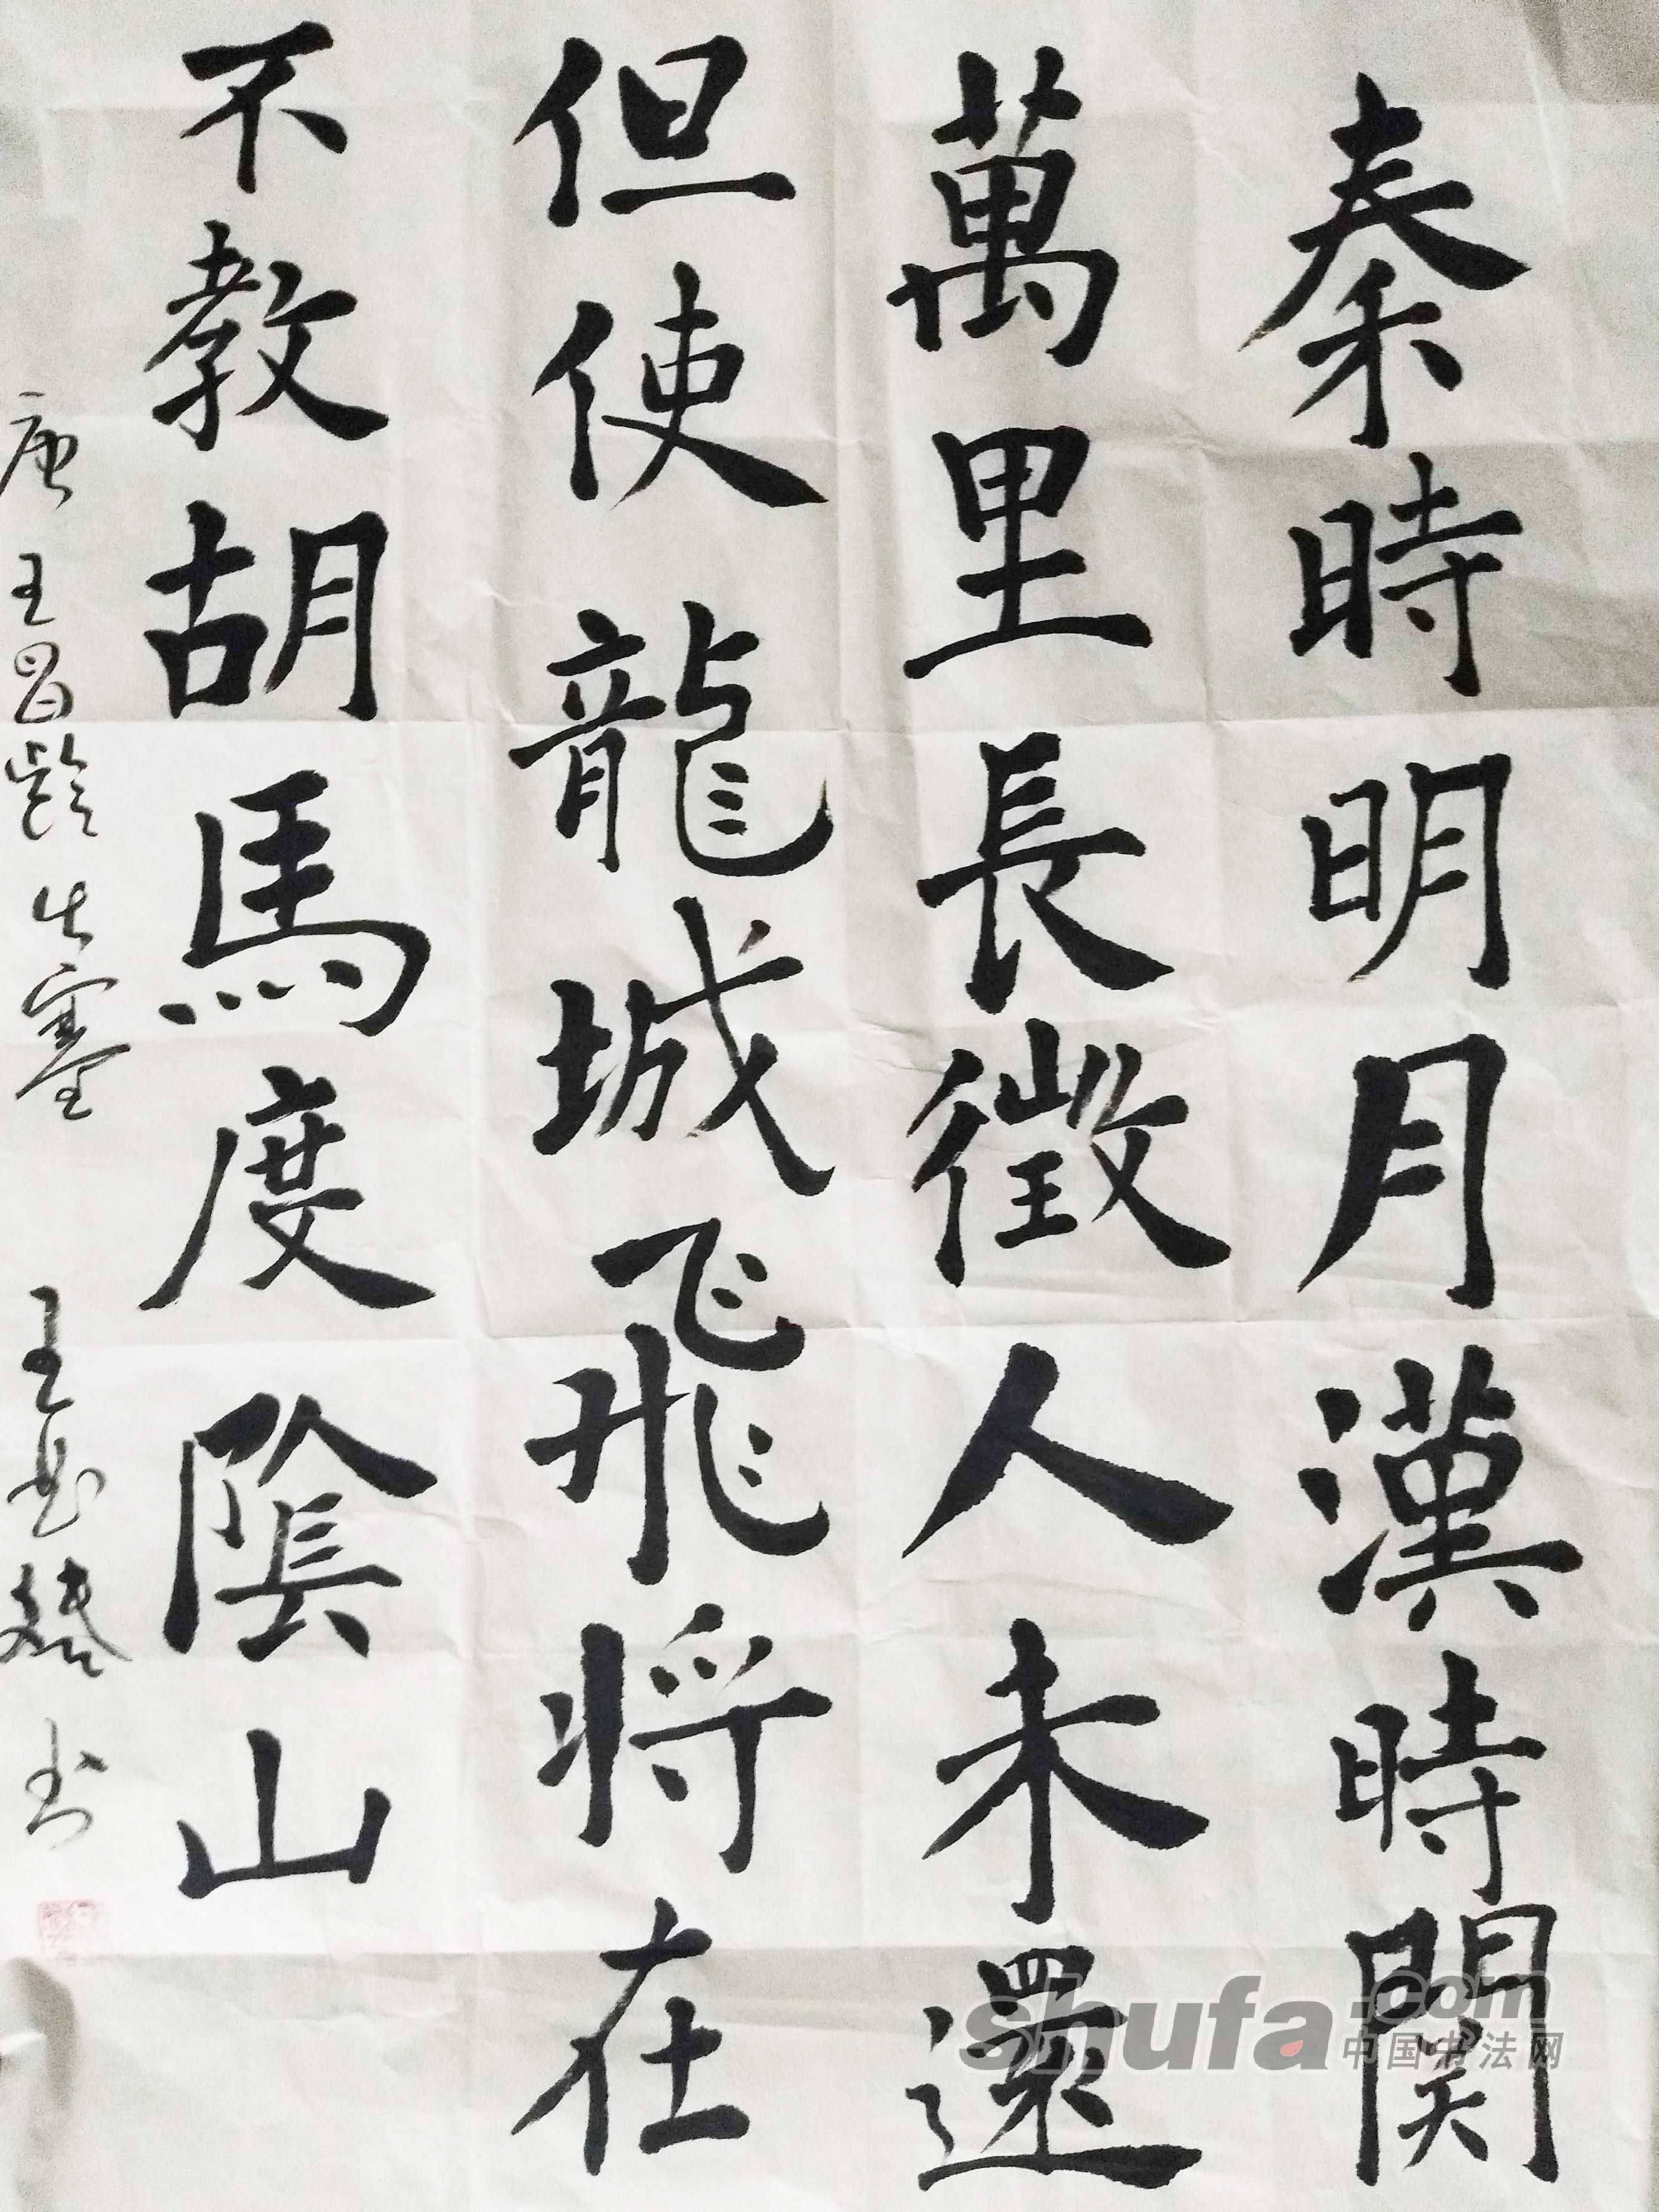 秦時明月漢時関
萬里長徵人未還
但使龍城飛將在
不教胡馬度陰山
唐王昌齡出塞
書
shufa.com
中国书法网